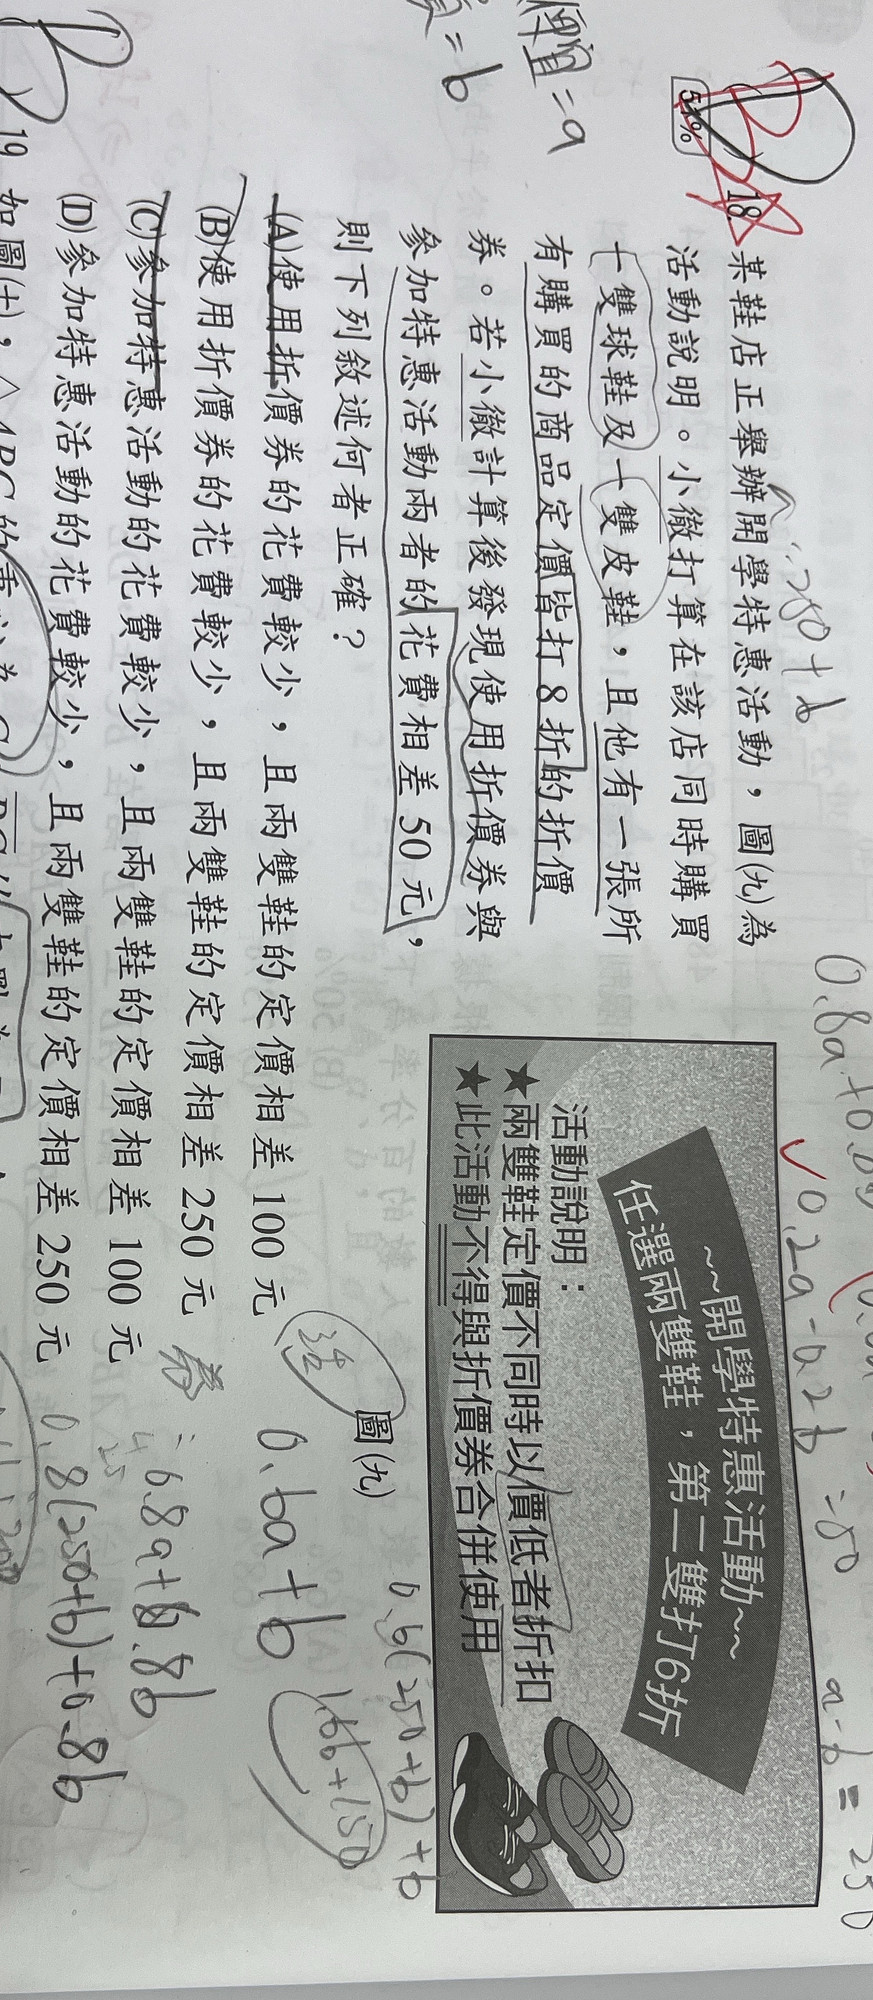 18.
51%
某鞋店正舉辦開學特惠活動，圖(九)為
活動說明。小徹打算在該店同時購買
一雙球鞋及一雙皮鞋，且他有一張所
有購買的商品定價皆打8折的折價
券。若小徹計算後發現使用折價券與
參加特惠活動兩者的花費相差50元，
則下列敘述何者正確？
(A)使用折價券的花費較少，且兩雙鞋的定價相差100元
(B)使用折價券的花費較少，且兩雙鞋的定價相差250元
(C)參加特惠活動的花費較少，且兩雙鞋的定價相差100元
(D)參加特惠活動的花費較少，且兩雙鞋的定價相差250元
~~開學特惠活動~~
任選兩雙鞋，第二雙打6折
活動說明：
★兩雙鞋定價不同時以價低者折扣
★此活動不得與折價券合併使用
圖(九)
=a
=b
250+b
0.2a-0.2b=50
a-b=250
活 0.6a+b
券：0.8a+0.8b
0.6(250+b)+b
1.6b+150
0.8(250+b)+0.8b
19. 如圖(十)，△ABC的重心為G